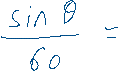 sin θ
60 =